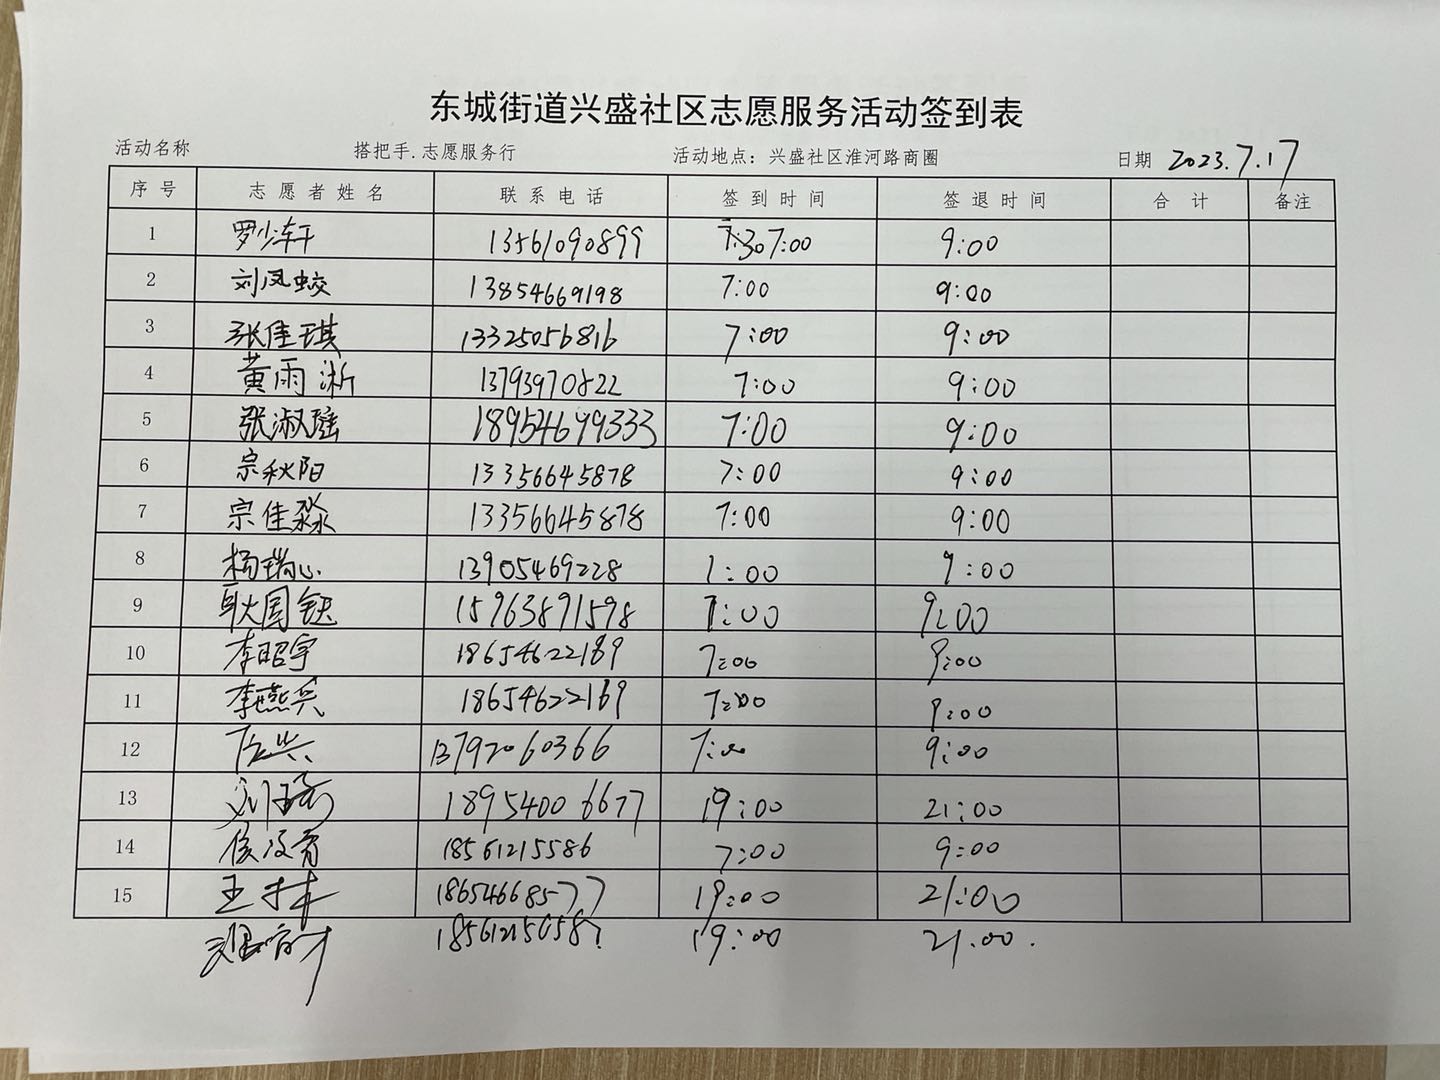 东城街道兴盛社区志愿服务活动签到表
活动名称 搭把手.志愿服务行 活动地点：兴盛社区淮河路商圈 日期 2023.7.17
序号 志愿者姓名 联系电话 签到时间 签退时间 合计 备注
1 罗少轩 13561090899 7:00 9:00
2 刘凤蛟 13854669198 7:00 9:00
3 张佳琪 13325056816 7:00 9:00
4 黄雨淅 13793970822 7:00 9:00
5 张淑瑶 18954699333 7:00 9:00
6 宗秋阳 13356645878 7:00 9:00
7 宗佳淼 13356645878 7:00 9:00
8 杨瑞心 13905469228 7:00 9:00
9 15963891598 7:00 9:00
10 李昭宇 18654622169 7:00 9:00
11 李燕兵 18654622169 7:00 9:00
12 13792060366 7:00 9:00
13 18954006677 19:00 21:00
14 18561215586 7:00 9:00
15 王林 18654668577 19:00 21:00
19:00 21:00.